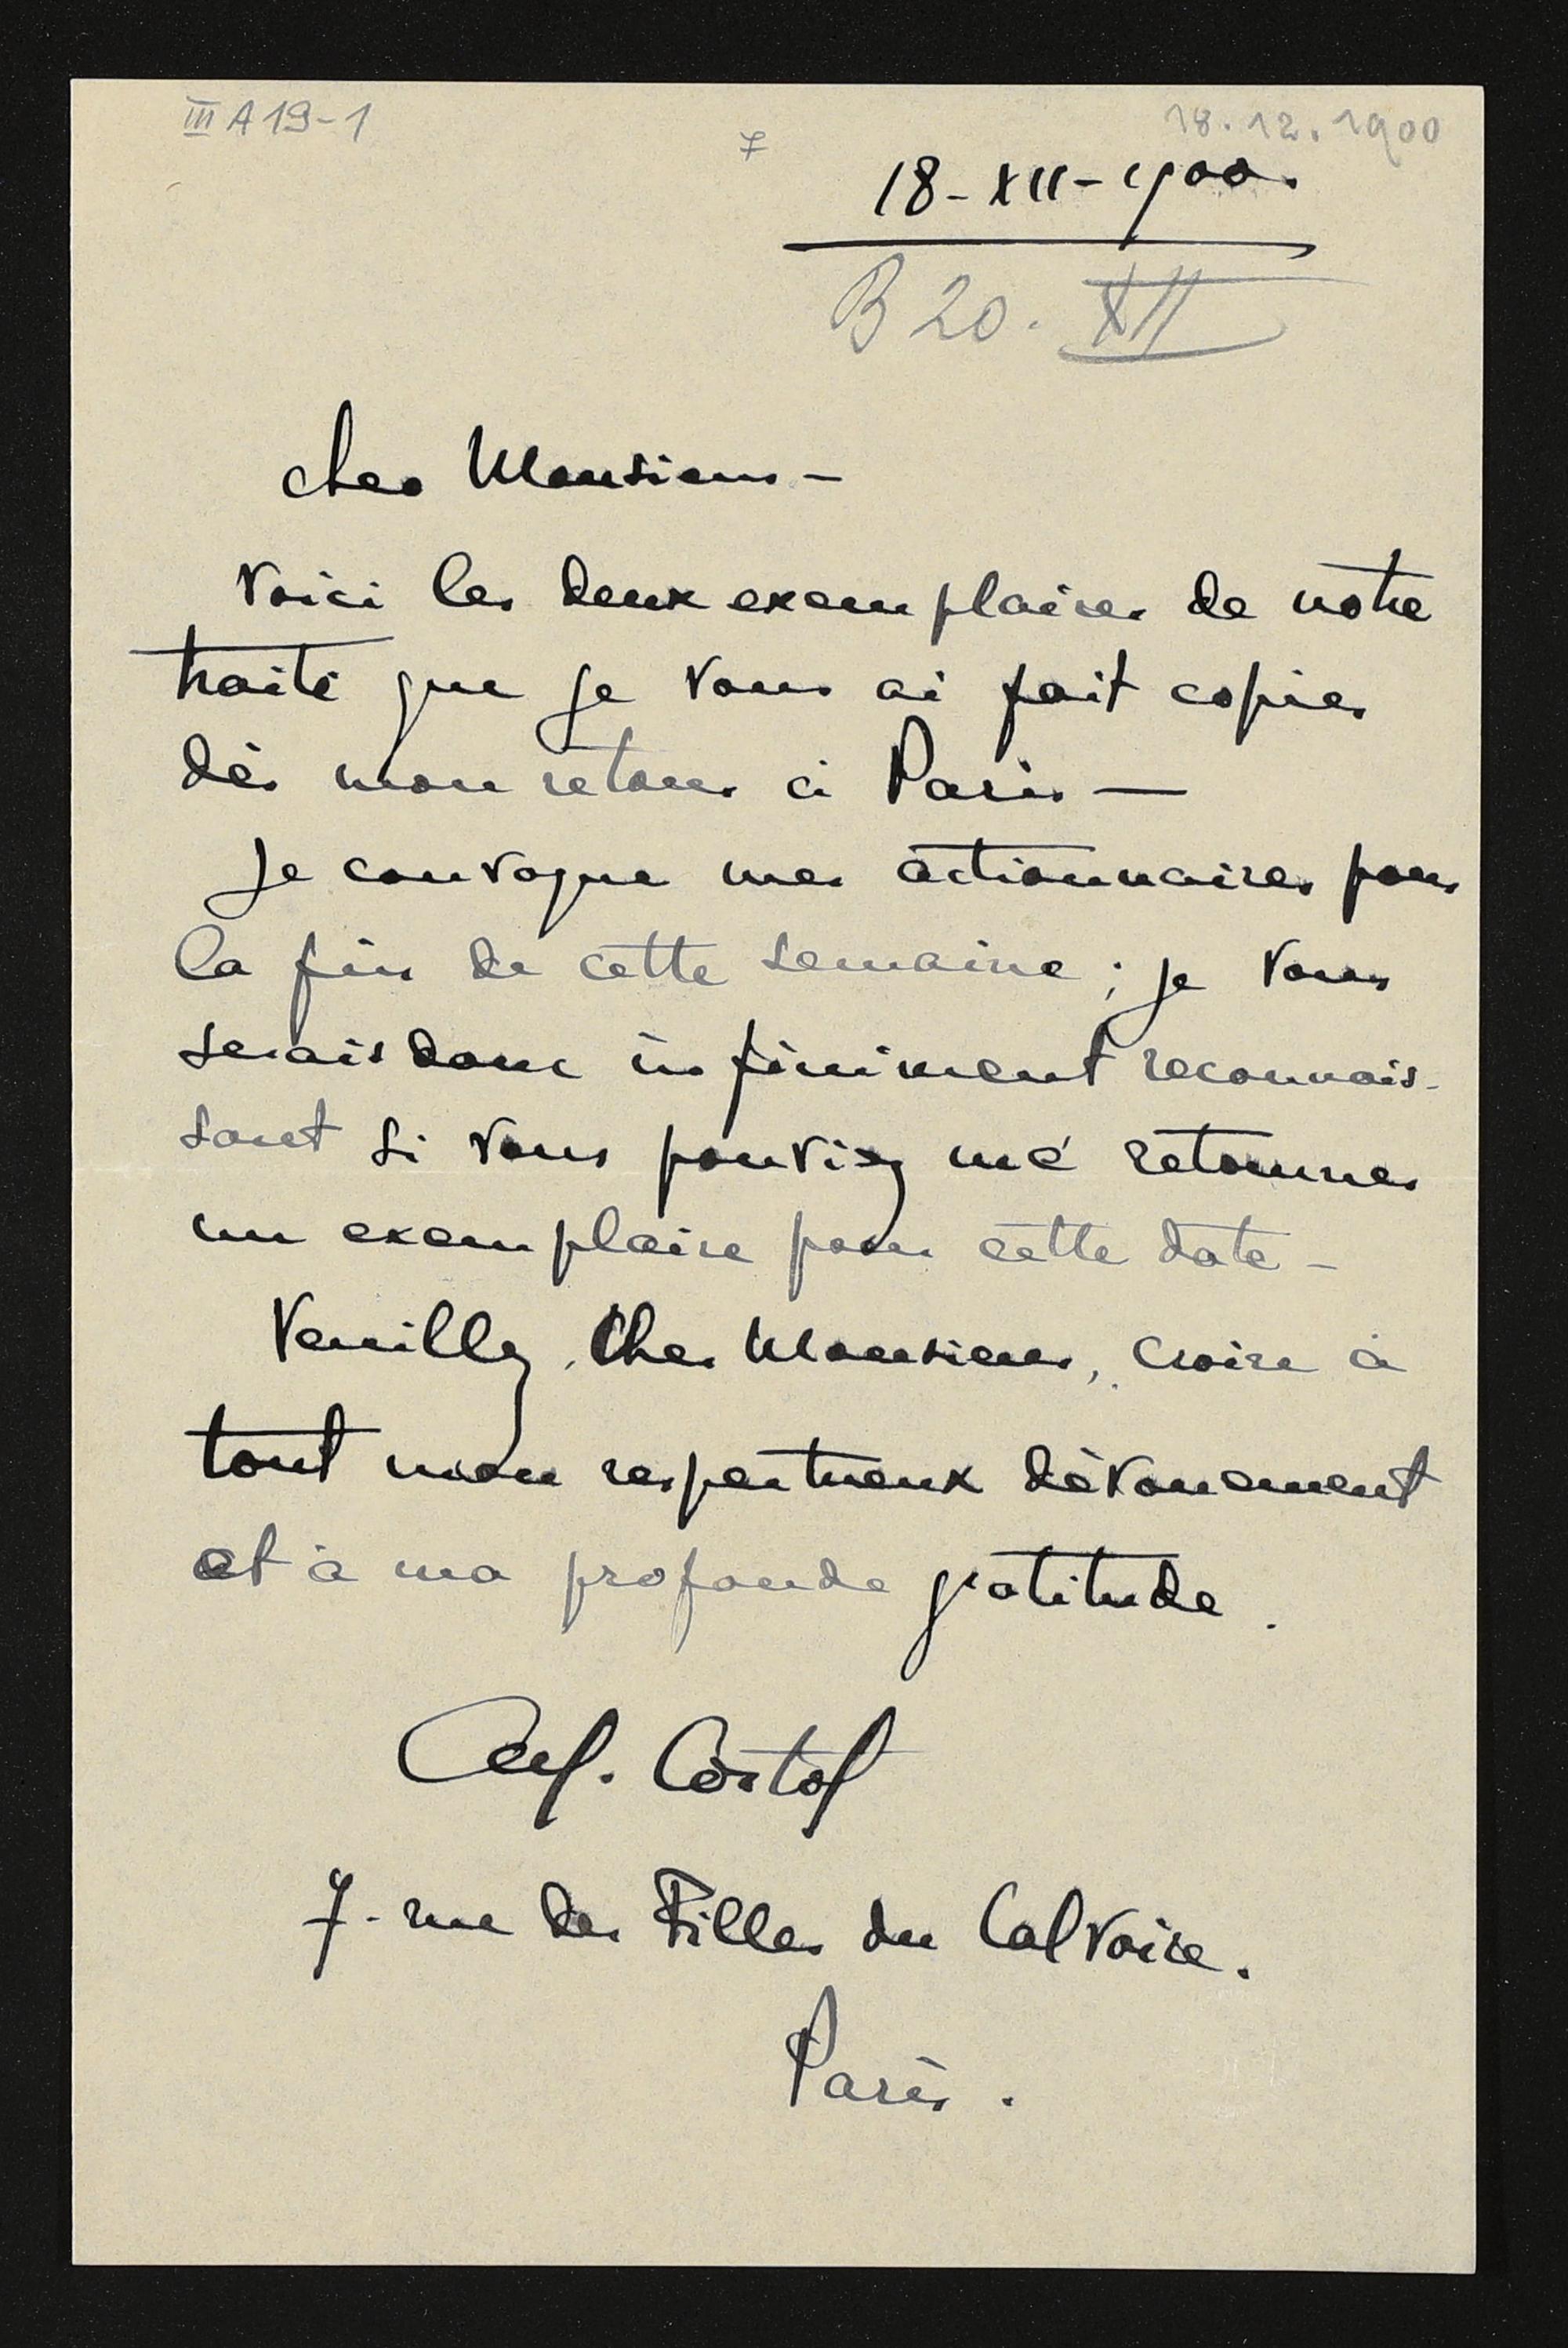 III A 19-1
7
18.12.1900
18-XII-1900.
B 20. XII
Cher Monsieur –
Voici les deux exemplaires de notre
traité que je vous ai fait copier
dès mon retour à Paris —
Je convoque mes actionnaires pour
la fin de cette semaine ; je vous
serais donc infiniment reconnais-
sant si vous pouviez me retourner
un exemplaire pour cette date –
Veuillez, Cher Monsieur, croire à
tout mon respectueux dévouement
et à ma profonde gratitude.
Alf. Cortot
7 - rue des Filles du Calvaire.
Paris.